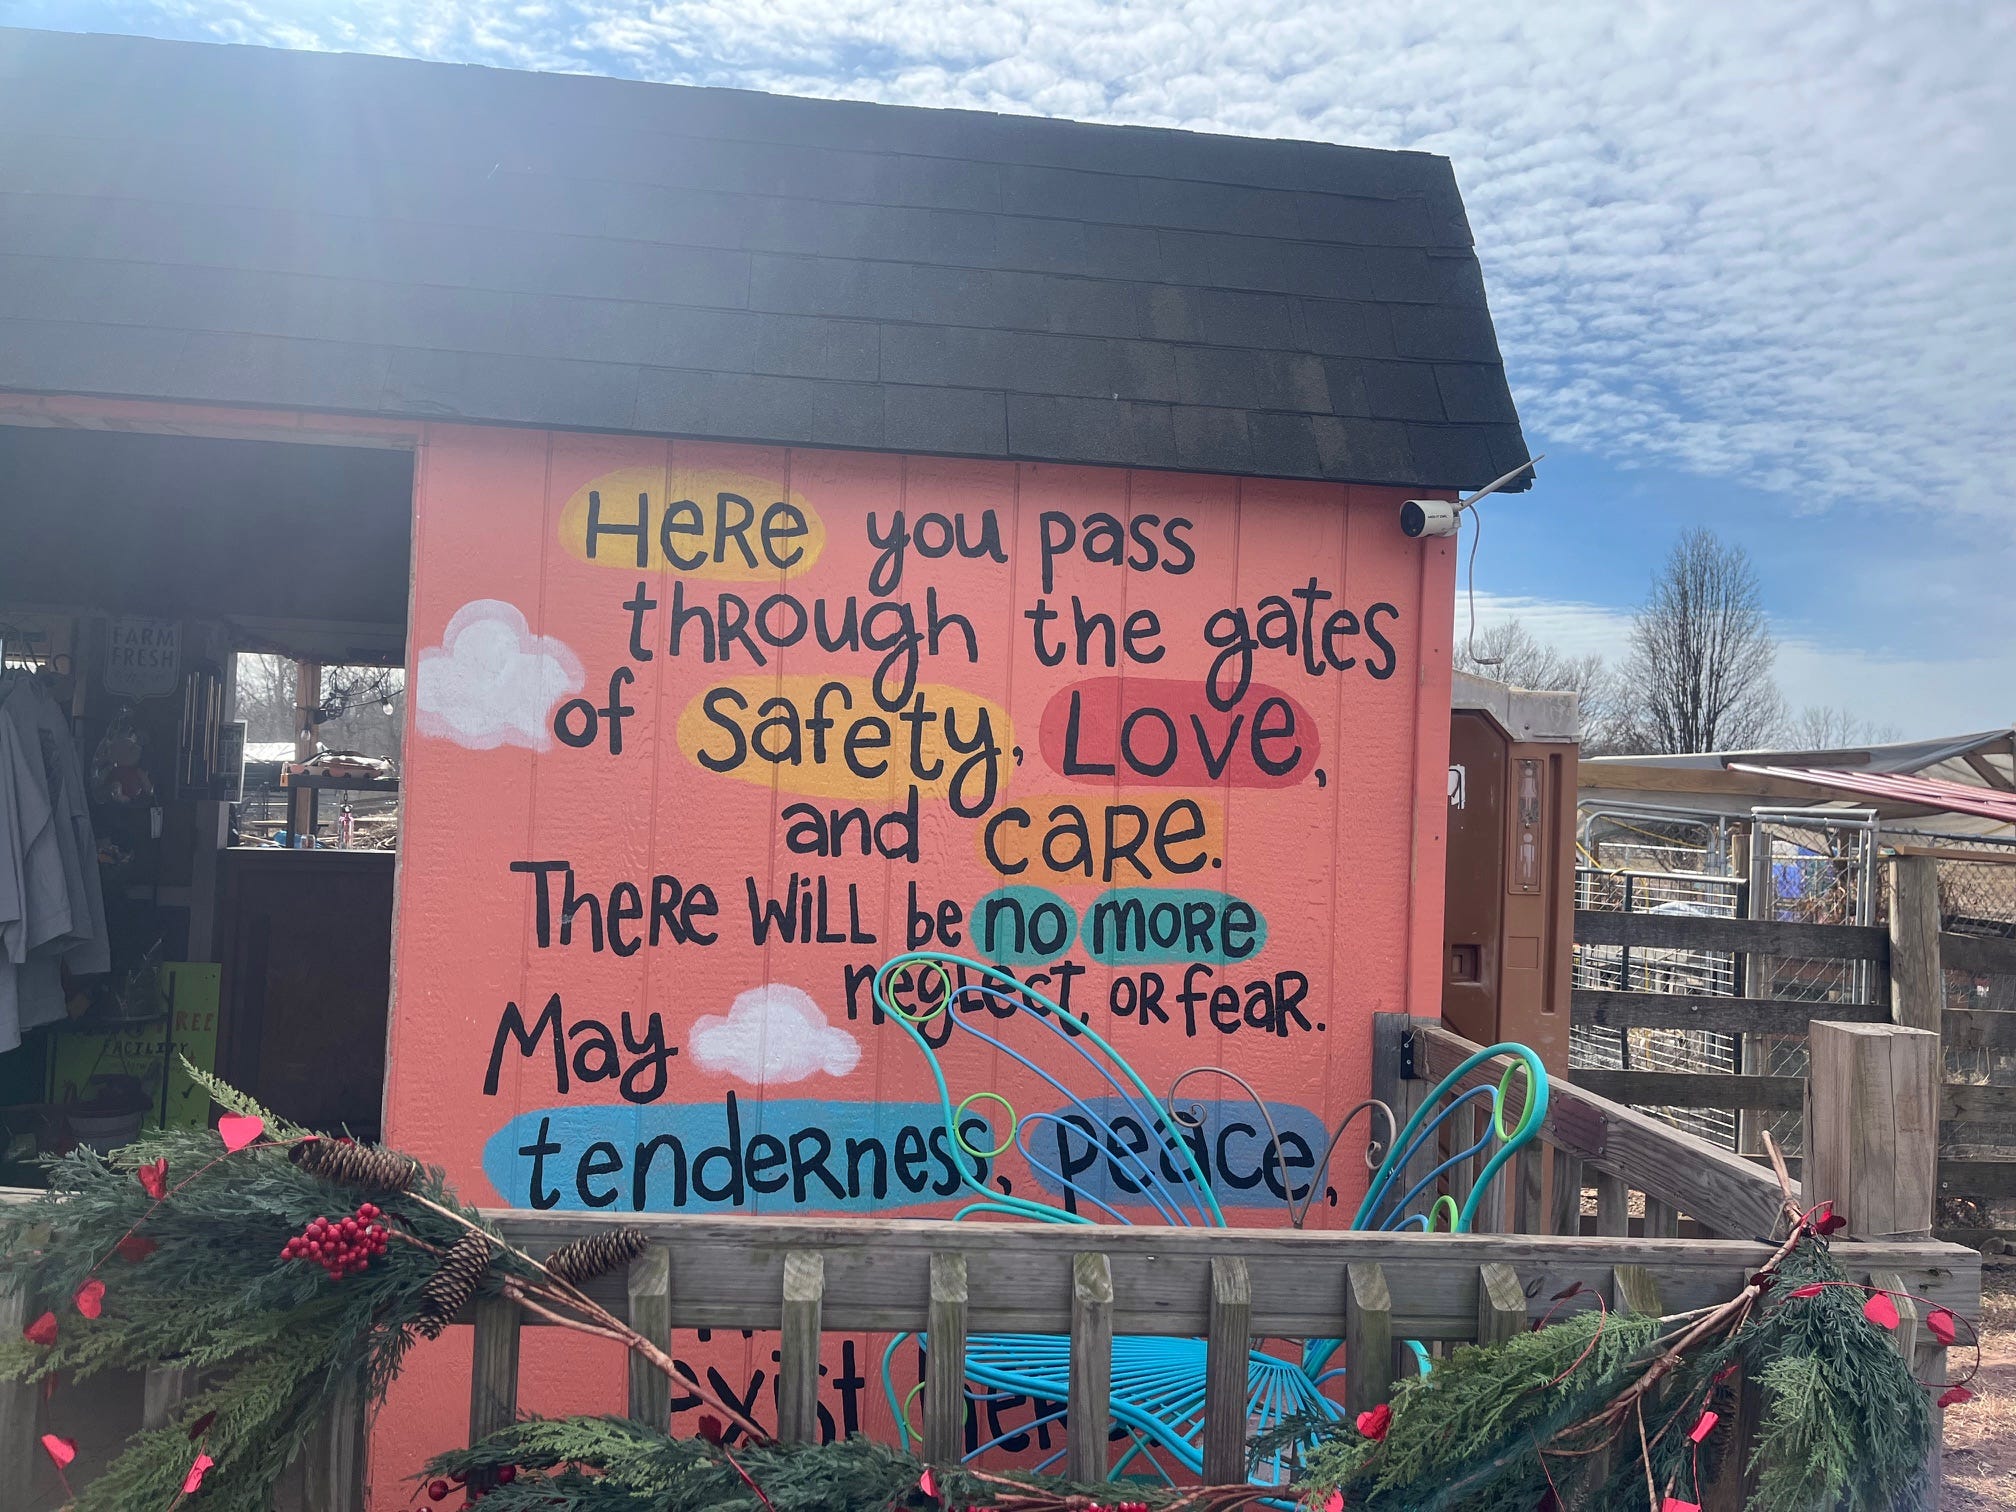 Here you pass
through the gates
of safety, Love,
and care.
There will be no more
neglect, or fear.
May
tenderness, peace,
exist here
FARM
FRESH
FACILITY